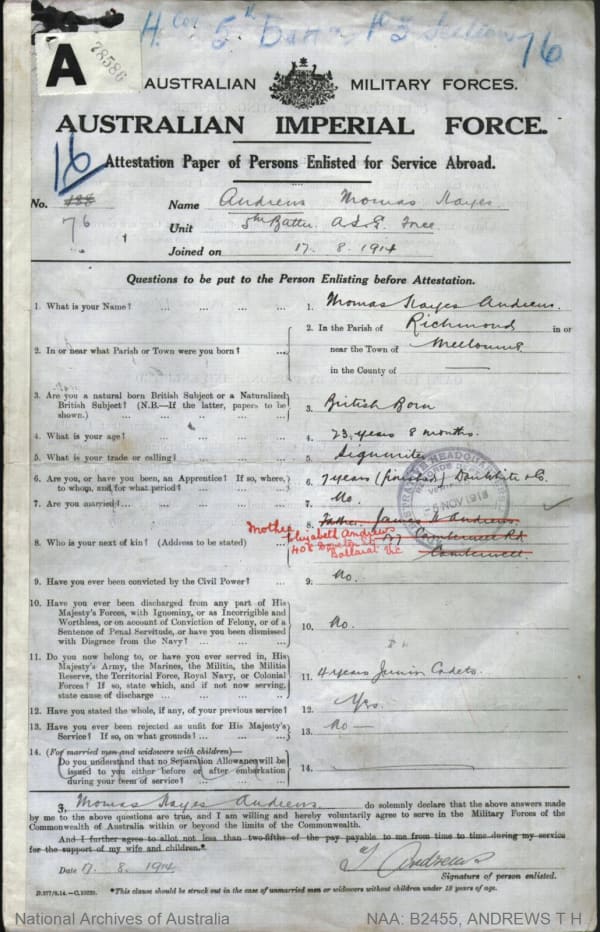 H Coy 5th Battn No 3 Section 76
A
78586
AUSTRALIAN MILITARY FORCES.
AUSTRALIAN IMPERIAL FORCE.
16
Attestation Paper of Persons Enlisted for Service Abroad.
No. 488 Name Andrews Thomas Hayes
76 Unit 5th Battn. A.I.E. Force
Joined on 17. 8. 1914
Questions to be put to the Person Enlisting before Attestation.
1. What is your Name? ... ... ... ... 1. Thomas Hayes Andrews.
2. In or near what Parish or Town were you born? ... 2. In the Parish of Richmond in or
near the Town of Melbourne
in the County of
3. Are you a natural born British Subject or a Naturalized
British Subject? (N.B.—If the latter, papers to be
shown.) ... ... ... ... 3. British Born
4. What is your age? ... ... ... ... 4. 23 years 8 months.
5. What is your trade or calling? ... ... ... 5. Signwriter
6. Are you, or have you been, an Apprentice? If so, where,
to whom, and for what period? ... ... ... 6. 7 years (finished) Dan White & Co.
7. Are you married? ... ... ... ... 7. No.
8. Who is your next of kin? (Address to be stated) ... 8. Father James Andrews
Camberwell Rd
Camberwell
Mother
Elizabeth Andrews
408 Doveton St
Ballarat Vic
5 NOV 1918
9. Have you ever been convicted by the Civil Power? ... 9. No.
10. Have you ever been discharged from any part of His
Majesty's Forces, with Ignominy, or as Incorrigible and
Worthless, or on account of Conviction of Felony, or of a
Sentence of Penal Servitude, or have you been dismissed
with Disgrace from the Navy? ... ... ... 10. No.
11. Do you now belong to, or have you ever served in, His
Majesty's Army, the Marines, the Militia, the Militia
Reserve, the Territorial Force, Royal Navy, or Colonial
Forces? If so, state which, and if not now serving,
state cause of discharge ... ... ... ... 11. 4 years Junior Cadets.
12. Have you stated the whole, if any, of your previous service? 12. Yes.
13. Have you ever been rejected as unfit for His Majesty's
Service? If so, on what grounds? ... ... ... 13. No
14. (For married men and widowers with children)—
Do you understand that no Separation Allowance will be
issued to you either before or after embarkation
during your term of service? ... ... ... 14.
I, Thomas Hayes Andrews do solemnly declare that the above answers made
by me to the above questions are true, and I am willing and hereby voluntarily agree to serve in the Military Forces of the
Commonwealth of Australia within or beyond the limits of the Commonwealth.
And I further agree to allot not less than two-fifths of the pay payable to me from time to time during my service
for the support of my wife and children.*
Date 17. 8. 1914 T Andrews
Signature of person enlisted.
D.577/8.14.—C.10229. *This clause should be struck out in the case of unmarried men or widowers without children under 18 years of age.
National Archives of Australia NAA: B2455, ANDREWS T H